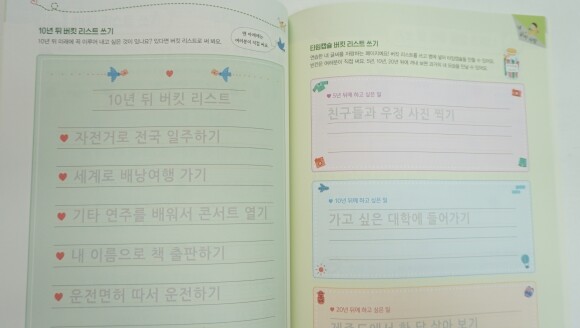 10년 뒤 버킷 리스트 쓰기
10년 뒤 미래에 꼭 이루어 내고 싶은 것이 있나요? 있다면 버킷 리스트로 써 봐요.
맨 아래에는
여러분이 직접 써요.
10년 뒤 버킷 리스트
자전거로 전국 일주하기
세계로 배낭여행 가기
기타 연주를 배워서 콘서트 열기
내 이름으로 책 출판하기
운전면허 따서 운전하기
타임캡슐 버킷 리스트 쓰기
5년 뒤에 하고 싶은 일
친구들과 우정 사진 찍기
10년 뒤에 하고 싶은 일
가고 싶은 대학에 들어가기
20년 뒤에 하고 싶은 일
제주도에서 한 달 살아 보기